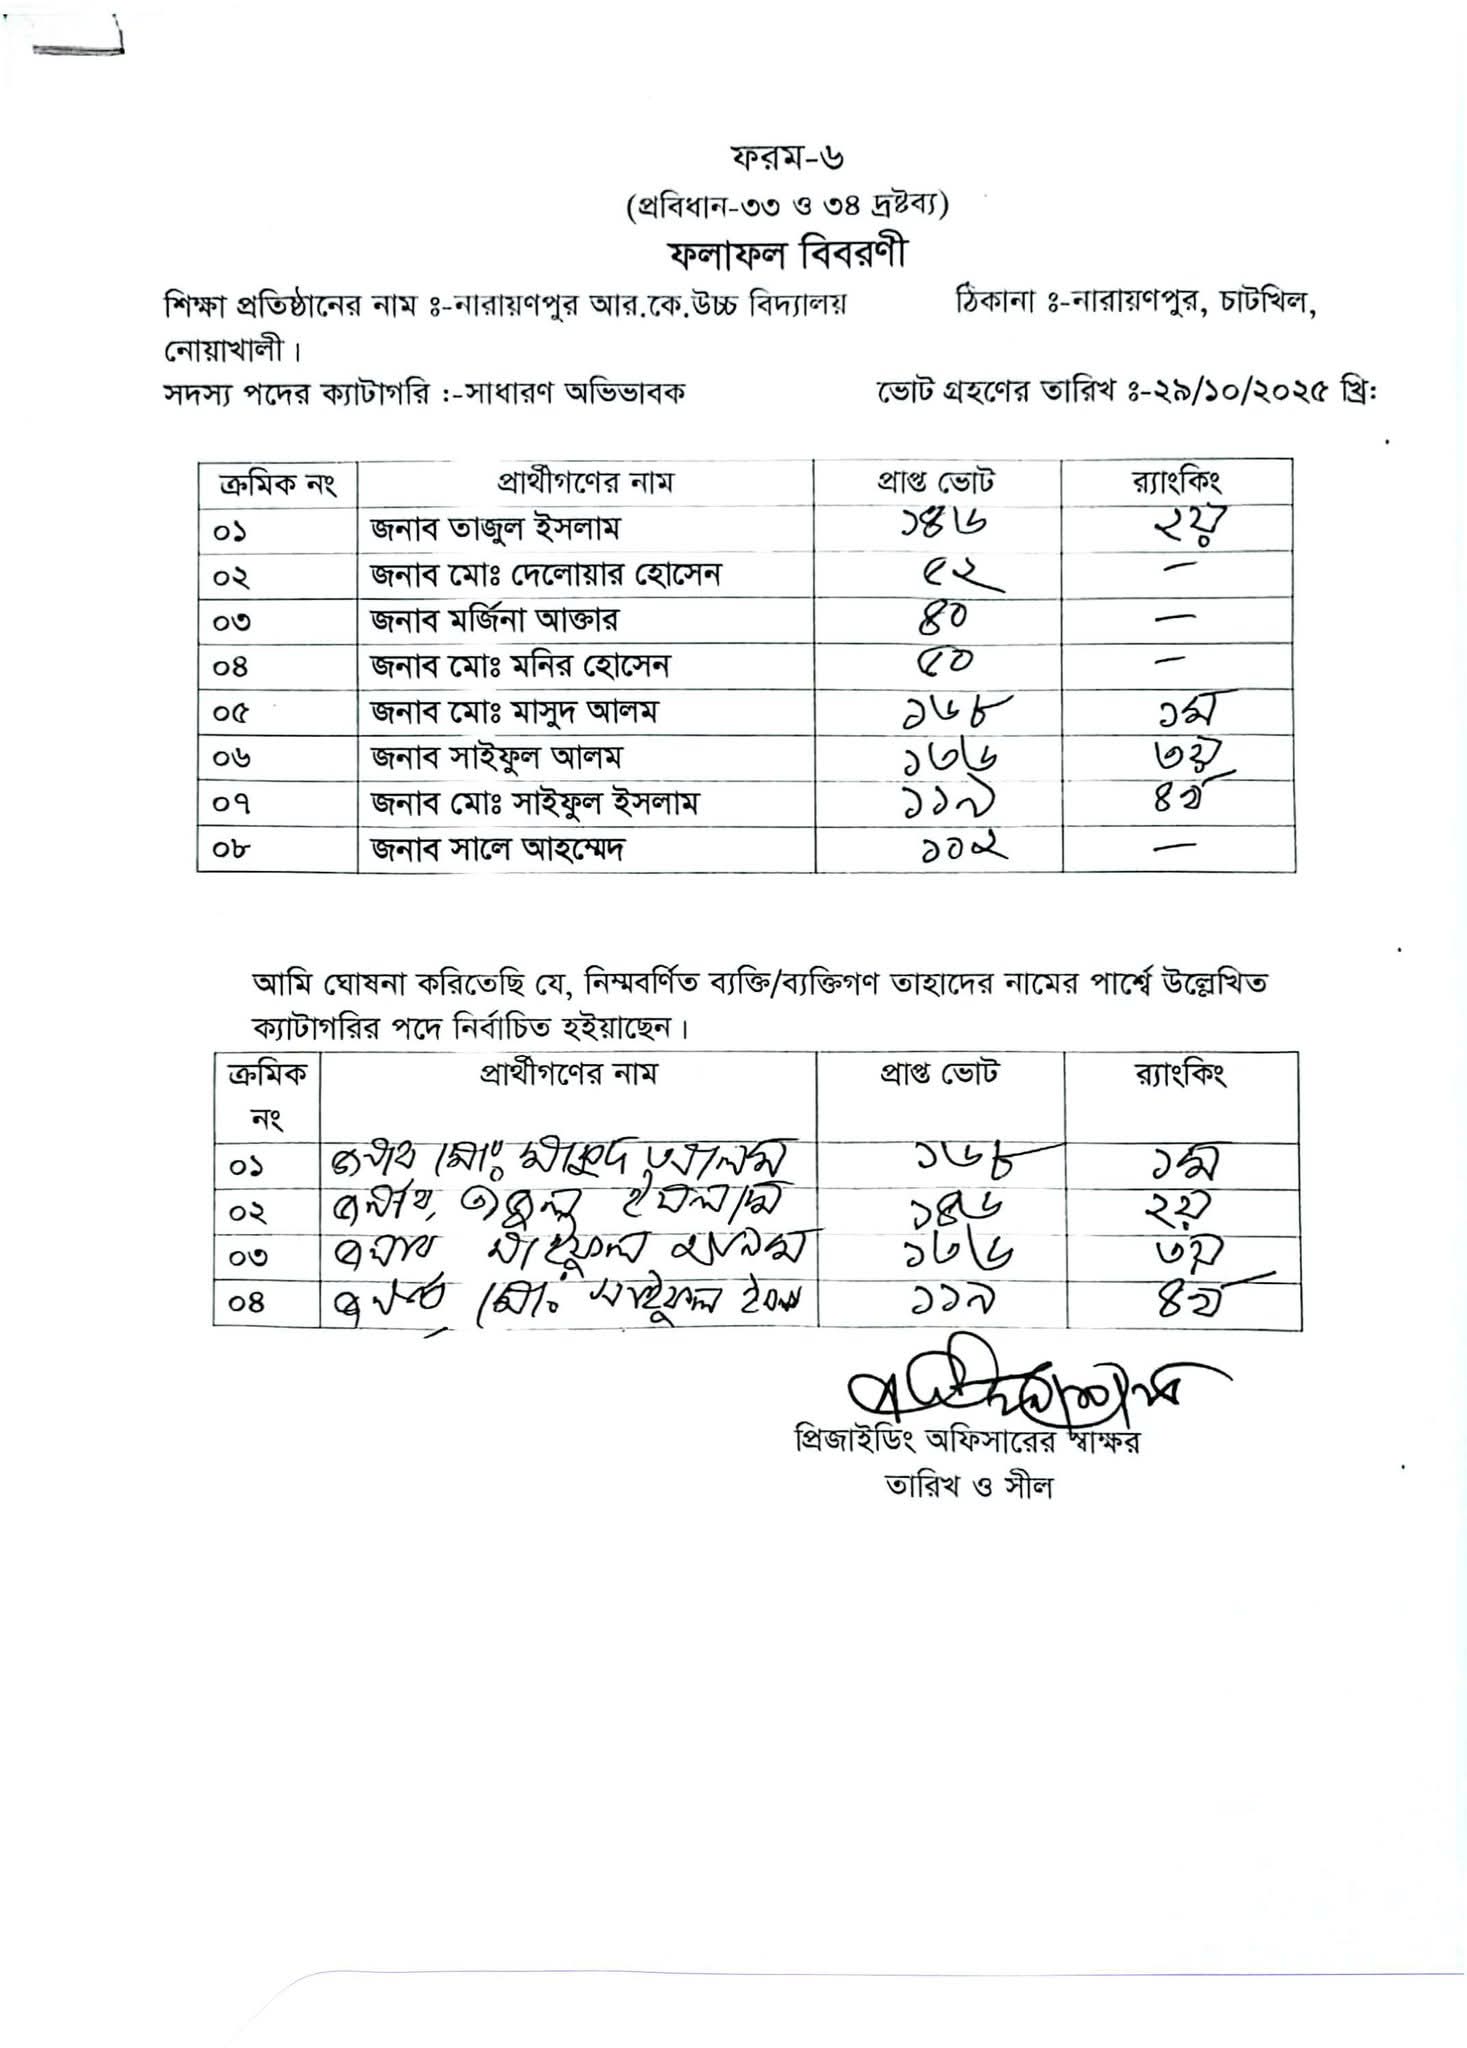 ফরম-৬
(প্রবিধান-৩৩ ও ৩৪ দ্রষ্টব্য)
ফলাফল বিবরণী
শিক্ষা প্রতিষ্ঠানের নাম ঃ-নারায়ণপুর আর.কে.উচ্চ বিদ্যালয় ঠিকানা ঃ-নারায়ণপুর, চাটখিল,
নোয়াখালী।
সদস্য পদের ক্যাটাগরি :-সাধারণ অভিভাবক ভোট গ্রহণের তারিখ ঃ-২৯/১০/২০২৫ খ্রি:
ক্রমিক নং প্রার্থীগণের নাম প্রাপ্ত ভোট র‍্যাংকিং
০১ জনাব তাজুল ইসলাম ১৪৬ ২য়
০২ জনাব মোঃ দেলোয়ার হোসেন ৫২ –
০৩ জনাব মর্জিনা আক্তার ৪০ –
০৪ জনাব মোঃ মনির হোসেন ৫০ –
০৫ জনাব মোঃ মাসুদ আলম ১৬৮ ১ম
০৬ জনাব সাইফুল আলম ১৩৬ ৩য়
০৭ জনাব মোঃ সাইফুল ইসলাম ১১৯ ৪র্থ
০৮ জনাব সালে আহম্মেদ ১০২ –
আমি ঘোষনা করিতেছি যে, নিম্মবর্ণিত ব্যক্তি/ব্যক্তিগণ তাহাদের নামের পার্শ্বে উল্লেখিত
ক্যাটাগরির পদে নির্বাচিত হইয়াছেন।
ক্রমিক প্রার্থীগণের নাম প্রাপ্ত ভোট র‍্যাংকিং
নং
০১ জনাব মোঃ মাসুদ আলম ১৬৮ ১ম
০২ জনাব তাজুল ইসলাম ১৪৬ ২য়
০৩ জনাব সাইফুল আলম ১৩৬ ৩য়
০৪ জনাব মোঃ সাইফুল ইসলাম ১১৯ ৪র্থ
প্রিজাইডিং অফিসারের স্বাক্ষর
তারিখ ও সীল